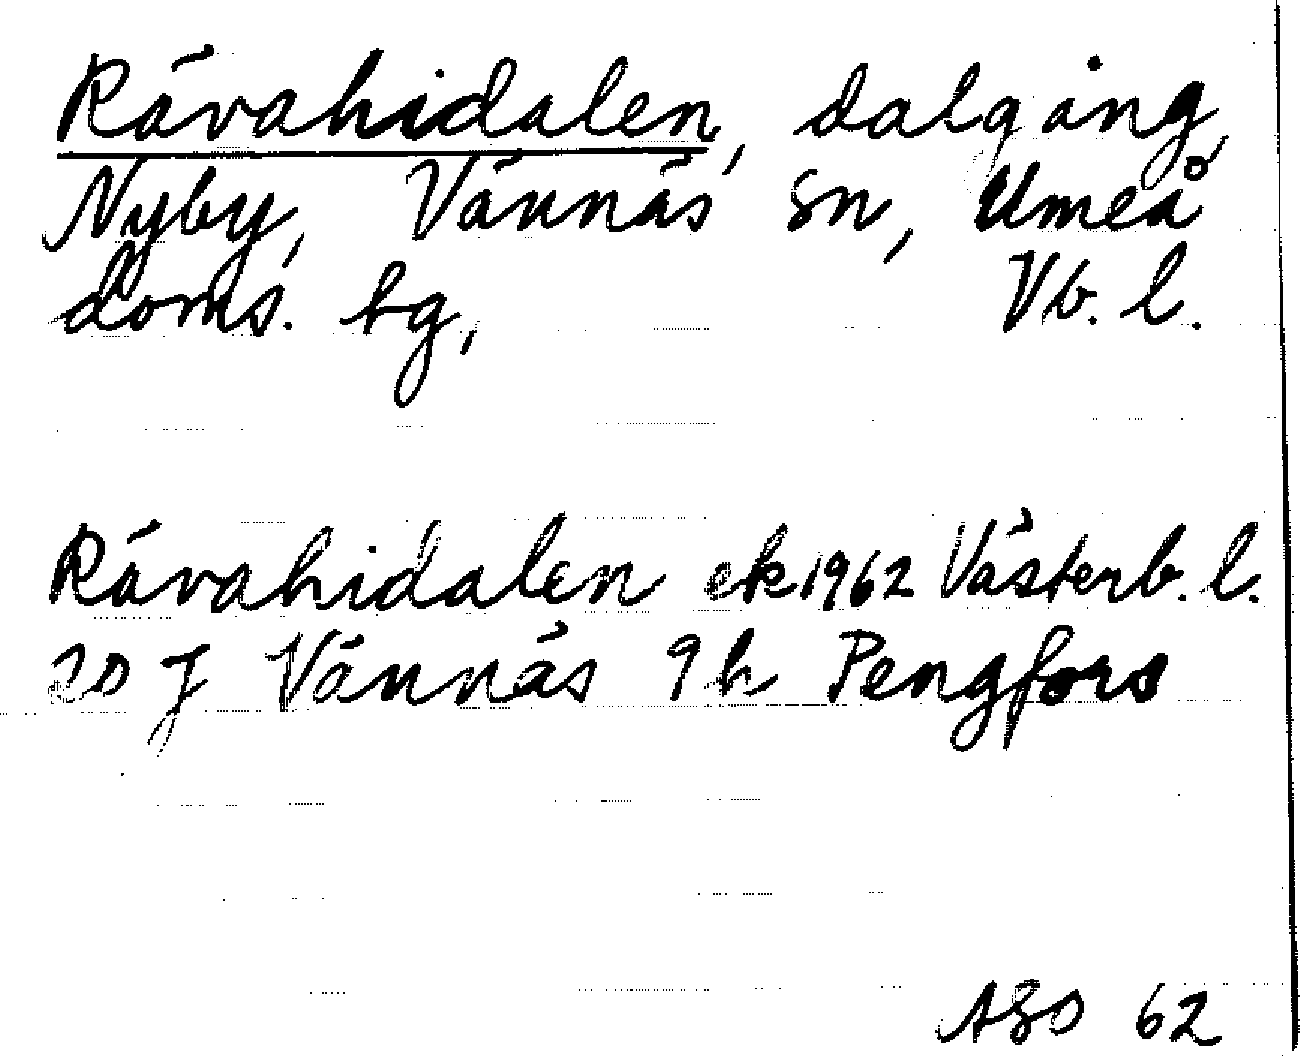 Rävahidalen, dalgång,
Nyby, Vännäs sn, Umeå
doms. hg, Vb. l.
Rävahidalen ek 1962 Västerb. l.
20 J Vännäs 9 h Pengfors
ASO 62